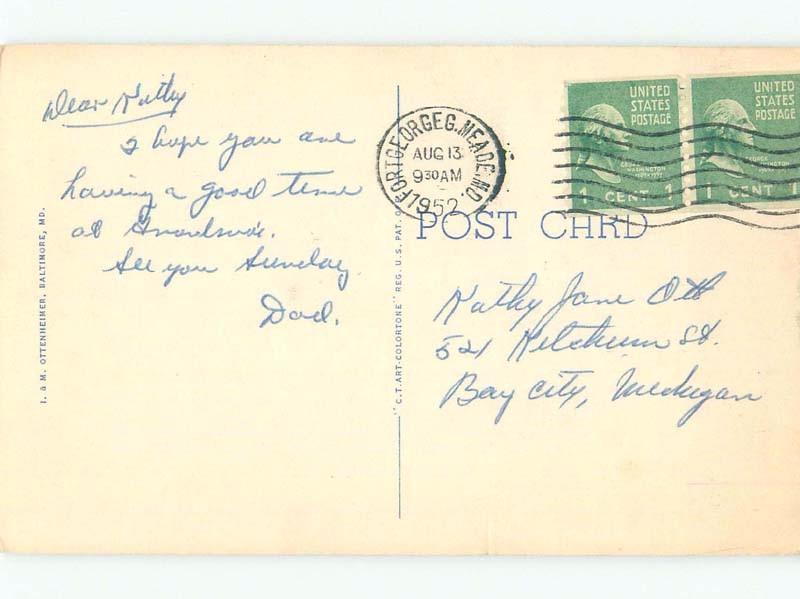 Dear Kathy
I hope you are
having a good time
at Grandma's.
See you Sunday
Dad.
I. & M. OTTENHEIMER, BALTIMORE, MD.
"C.T. ART-COLORTONE" REG. U.S. PAT. O
FORT GEORGE G. MEADE, MD.
AUG 13
9 30 AM
1952
UNITED
STATES
POSTAGE
GEORGE
WASHINGTON
1 CENT 1
UNITED
STATES
POSTAGE
GEORGE
WASHINGTON
1 CENT 1
POST CARD
Kathy Jane Ott
521 Ketchum St.
Bay City, Michigan